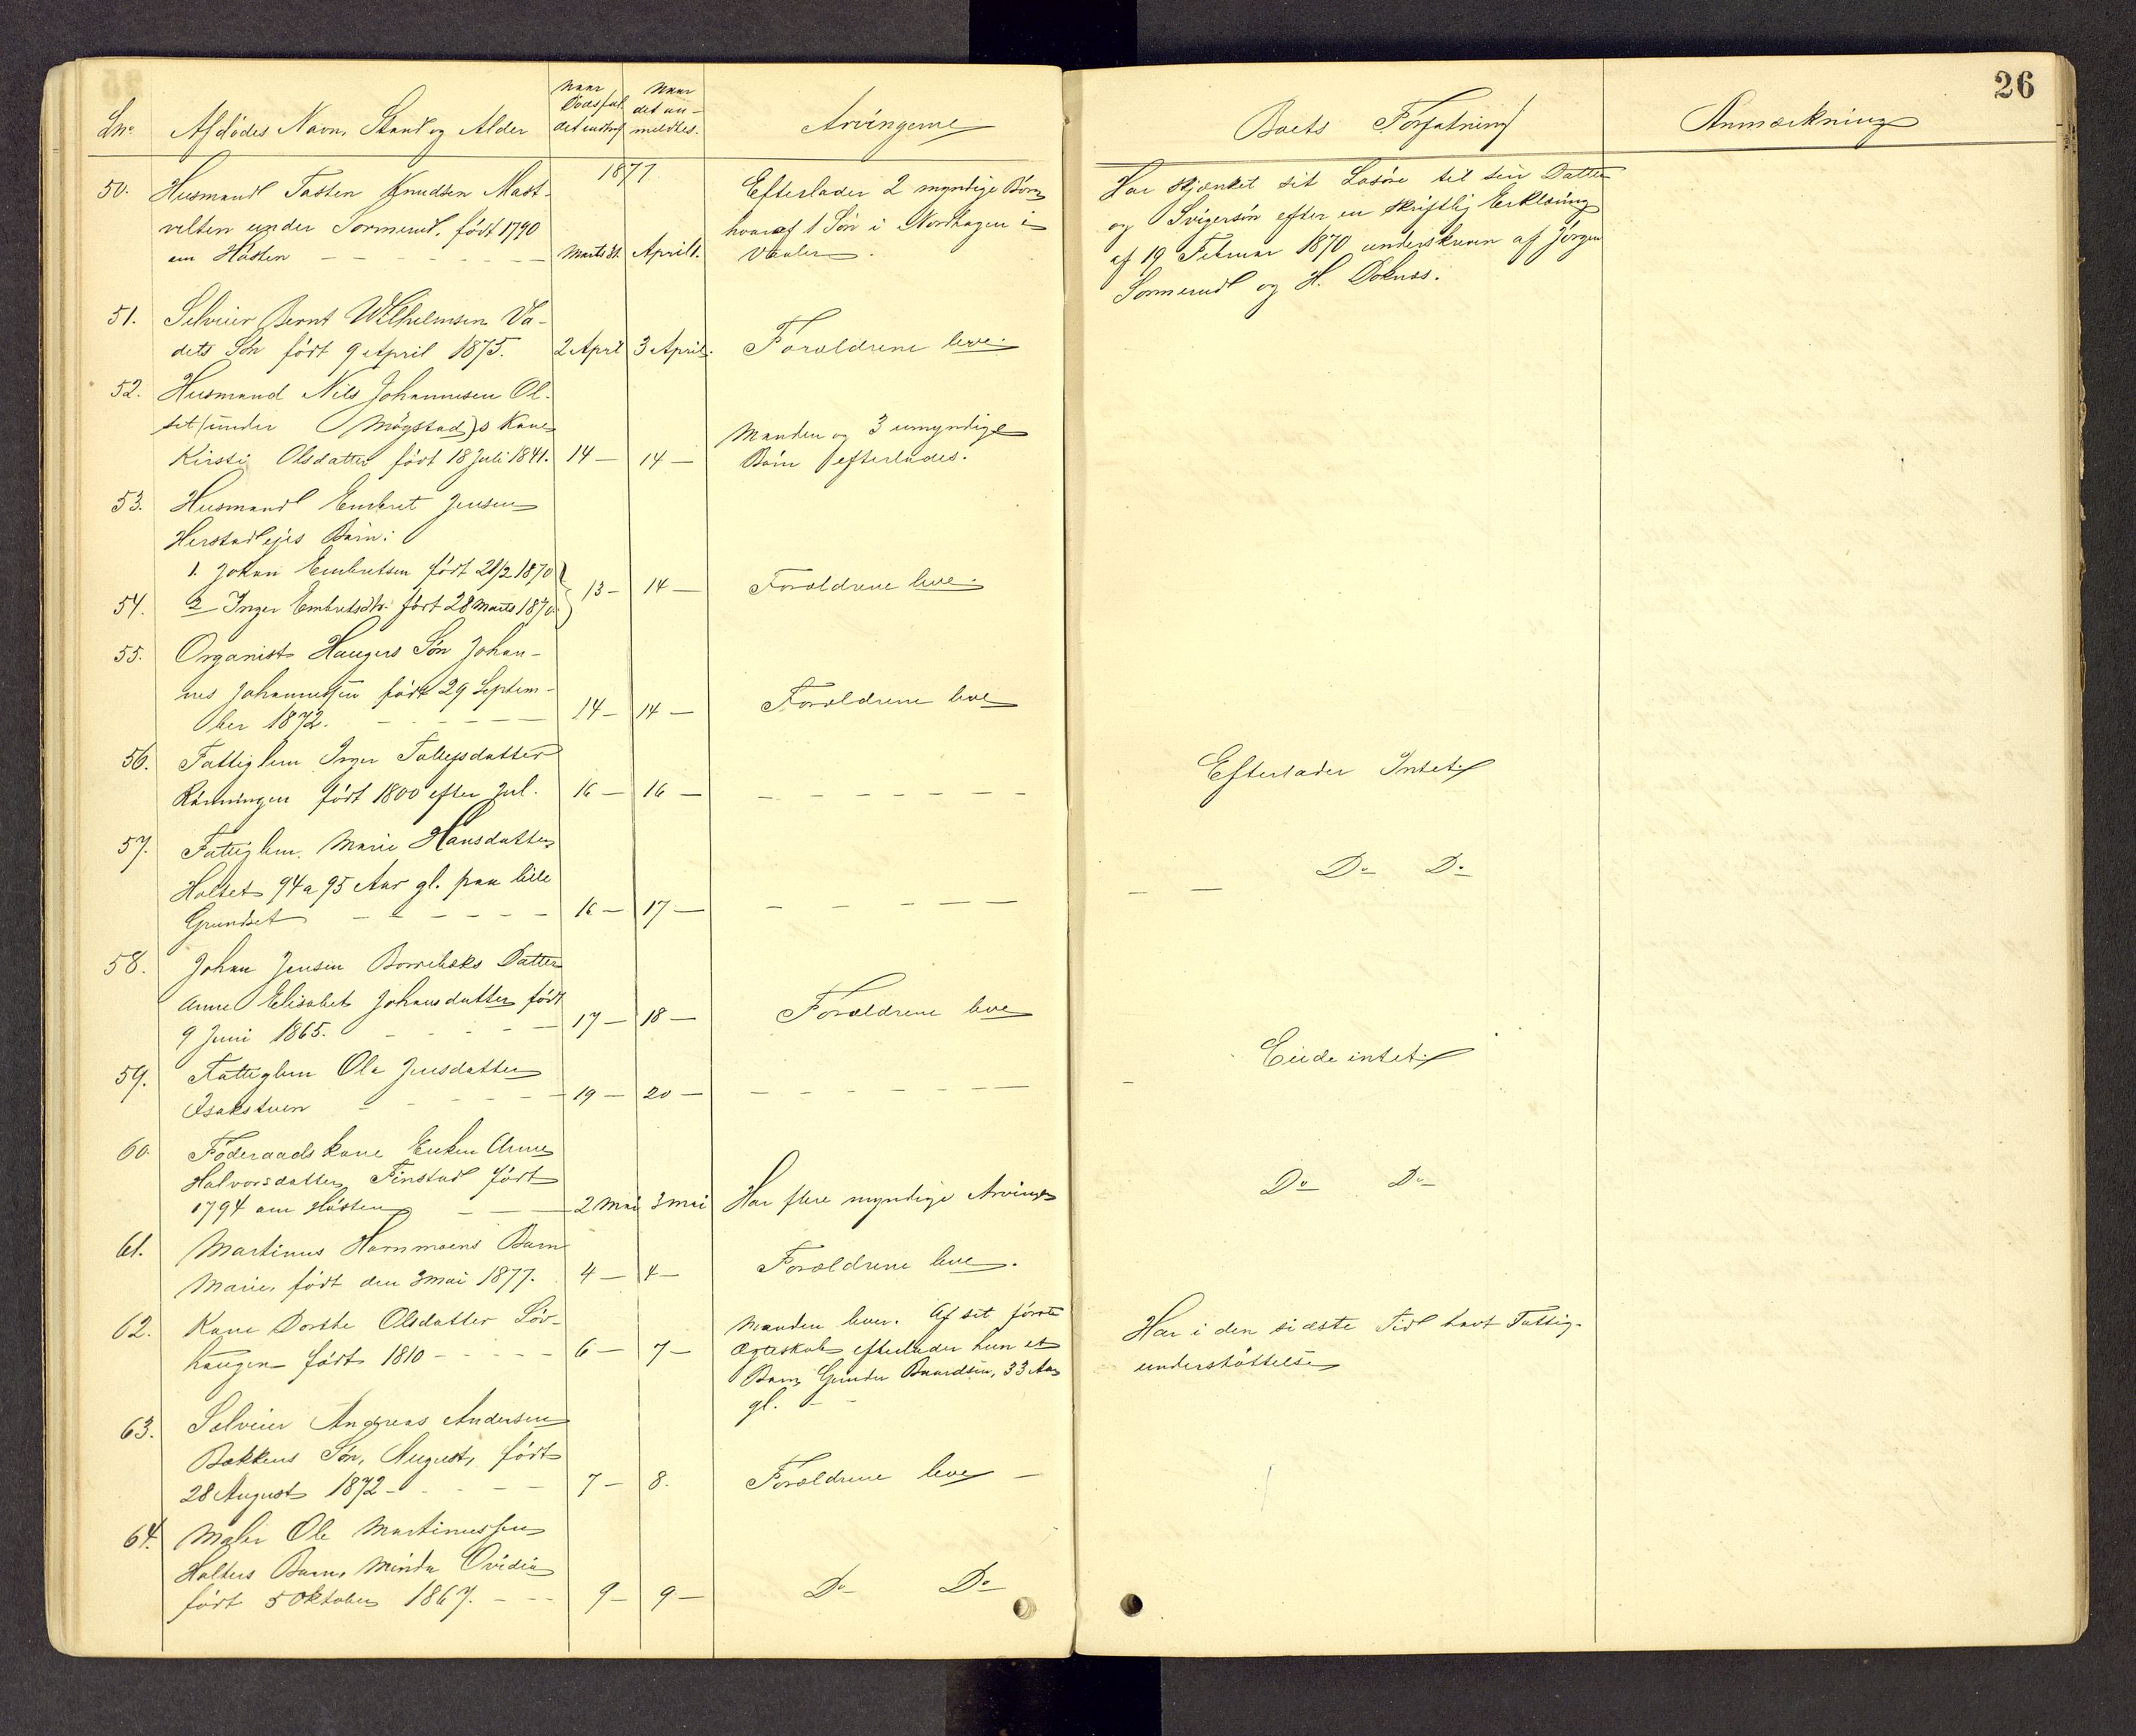 26
Lno
Afdødes Navn, Stand og Alder
Naar Dödsfaldet indtraf
Naar det anmeldtes.
Arvingerne
Boets Forfatning
Anmærkning
1877
50. Husmand Tosten Knudsen Mast-
velten under Sormerud, född 1790
om Hösten — Marts 31. April 1.
Efterlader 2 myndige Börn
hvoraf 1 Sön i Nordhagen i
Vaaler.
Har skjænket sit Lösöre til sin Datter
og Svigersön efter en skriftlig Erklæring
af 19 Februar 1870 underskreven af Jörgen
Sormerud og H. Doknæs.
51. Selveier Bernt Wilhelmsen Va-
dets Sön født 9 April 1875. 2 April 3 April. Forældrene leve.
52. Husmand Nils Johannesen Ol-
set (under Mögstad)s Kone
Kirsti Olsdatter født 18 Juli 1841. 14 — 14 —
Manden og 3 umyndige
Börn efterlades.
53. Husmand Embret Jensen
Herstadeiets Börn:
1. Johan Embretsen født 21/2 1870
54. 2 Inger Embretsdtr. født 28 Marts 1870. 13 — 14 — Forældrene leve.
55. Organist Haugers Sön Johan-
nes Johannessen født 29 Septem-
ber 1872. 14 — 14 — Forældrene leve
56. Fattiglem Inger Tollefsdatter
Rönningen født 1800 efter Jul. 16 — 16 — Efterlader Intet.
57. Fattiglem Marie Hansdatter
Holtet 94 a 95 Aar gl. paa lille
Grundset 16 — 17 — Do Do
58. Johan Jensen Borrebæks Datter
Anne Elisabet Johansdatter født
9 Juni 1865. 17 — 18 — Forældrene leve
59. Fattiglem Ole Jensdatter
Isakstuen 19 — 20 — Eiede intet.
60. Föderaadskone Enken Anne
Halvorsdatter Finstad født
1794 om Hösten 2 Mai 3 Mai Har flere myndige Arvinger Do Do
61. Martinus Hornmoens Barn
Marie, født den 3 Mai 1877. 4 — 4 — Forældrene leve.
62. Kone Dorthe Olsdatter Löv-
haugen født 1810 — 6 — 7 —
Manden lever. Af sit første
Ægteskab efterlader hun et
Barn Gunder Baardsen, 33 Aar
gl.
Har i den sidste Tid havt Fattig-
understöttelse
63. Selveier Andreas Andersen
Bakkens Sön, August, født
28 August 1872 — 7 — 8. Forældrene leve —
64. Maler Ole Martinussen
Holters Barn, Minda Ovidia
født 5 Oktober 1867. — 9 — 9 — Do Do